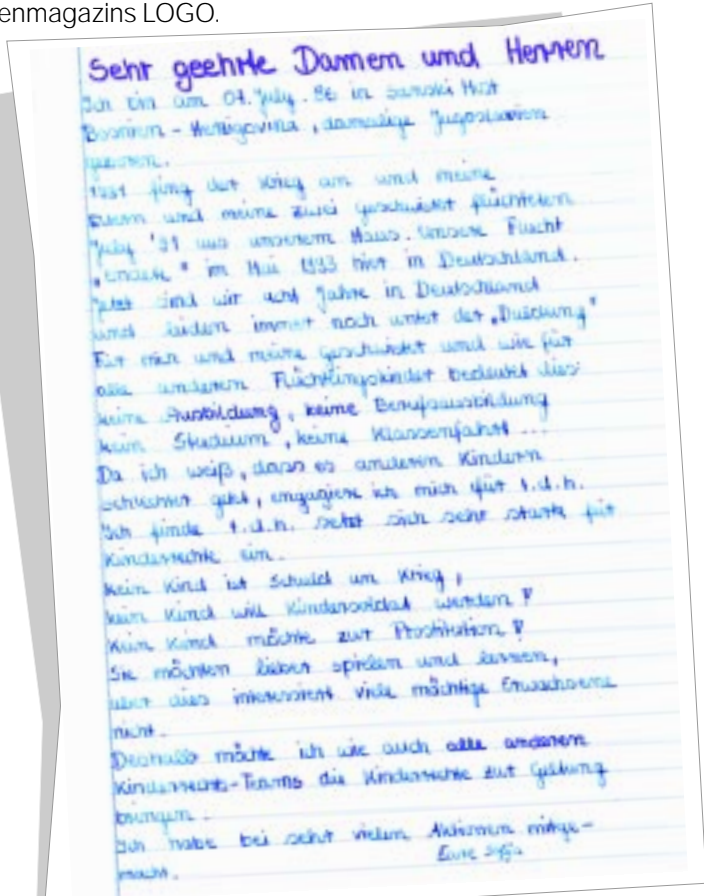 enmagazins LOGO.
Sehr geehrte Damen und Herren
Ich bin am 01. July. 86 in Sanski Most
Bosnien - Herzigovina, damalige Jugoslawien
geboren.
1991 fing der Krieg an und meine
Eltern und meine zwei geschwister flüchteten
July '91 aus unserem Haus. Unsere Flucht
"endete" im Mai 1993 hier in Deutschland.
Jetzt sind wir acht Jahre in Deutschland
und leiden immer noch unter der "Duldung"
Für mich und meine geschwister und wie für
alle anderen Flüchtlingskinder bedeutet dies:
keine Ausbildung, keine Berufsausbildung
kein Studium, keine Klassenfahrt ...
Da ich weiß, dass es anderen Kindern
schlechter geht, engagiere ich mich für t.d.h.
Ich finde t.d.h. setzt sich sehr stark für
Kinderrechte ein.
Kein Kind ist Schuld am Krieg,
kein Kind will Kindersoldat werden!
Kein Kind möchte zur Prostitution!
Sie möchten lieber spielen und lernen,
aber dies interessiert viele mächtige Erwachsene
nicht.
Deshalb möchte ich wie auch alle anderen
Kinderrechts-Teams die Kinderrechte zur Geltung
bringen.
Ich habe bei sehr vielen Aktionen mitge-
macht.
Eure